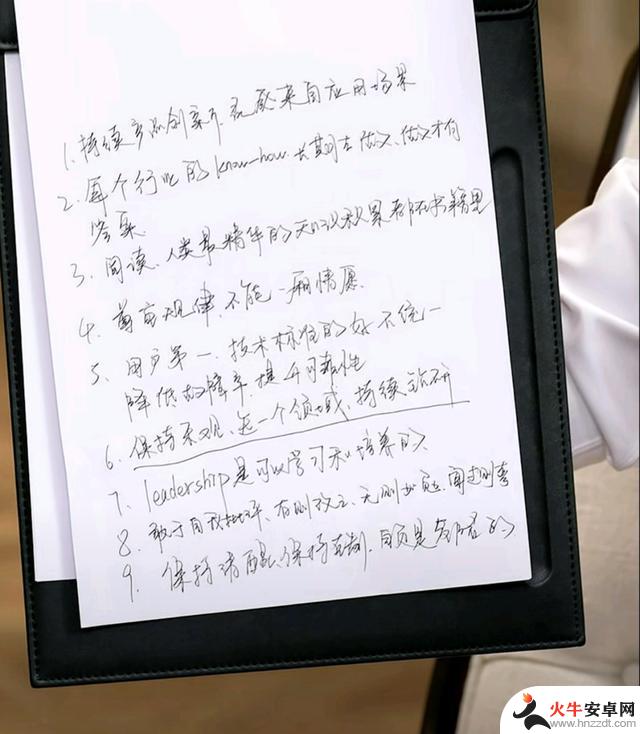 1. 持续产品创新, 灵感来自应用场景
2. 每个行业的 know-how. 长期去做, 做才有
答案
3. 阅读、人类最精华的知识积累都在书籍里
4. 尊重规律, 不能一厢情愿
5. 用户第一. 技术标准的好不统一
降低故障率. 提升可靠性
6. 保持乐观、在一个领域, 持续钻研
7. leadership是可以学习和培养的
8. 敢于自我批评、有则改之, 无则加勉、闻过则喜
9. 保持清醒、保持克制. 自负是
火牛安卓网
www.hnzzdt.com